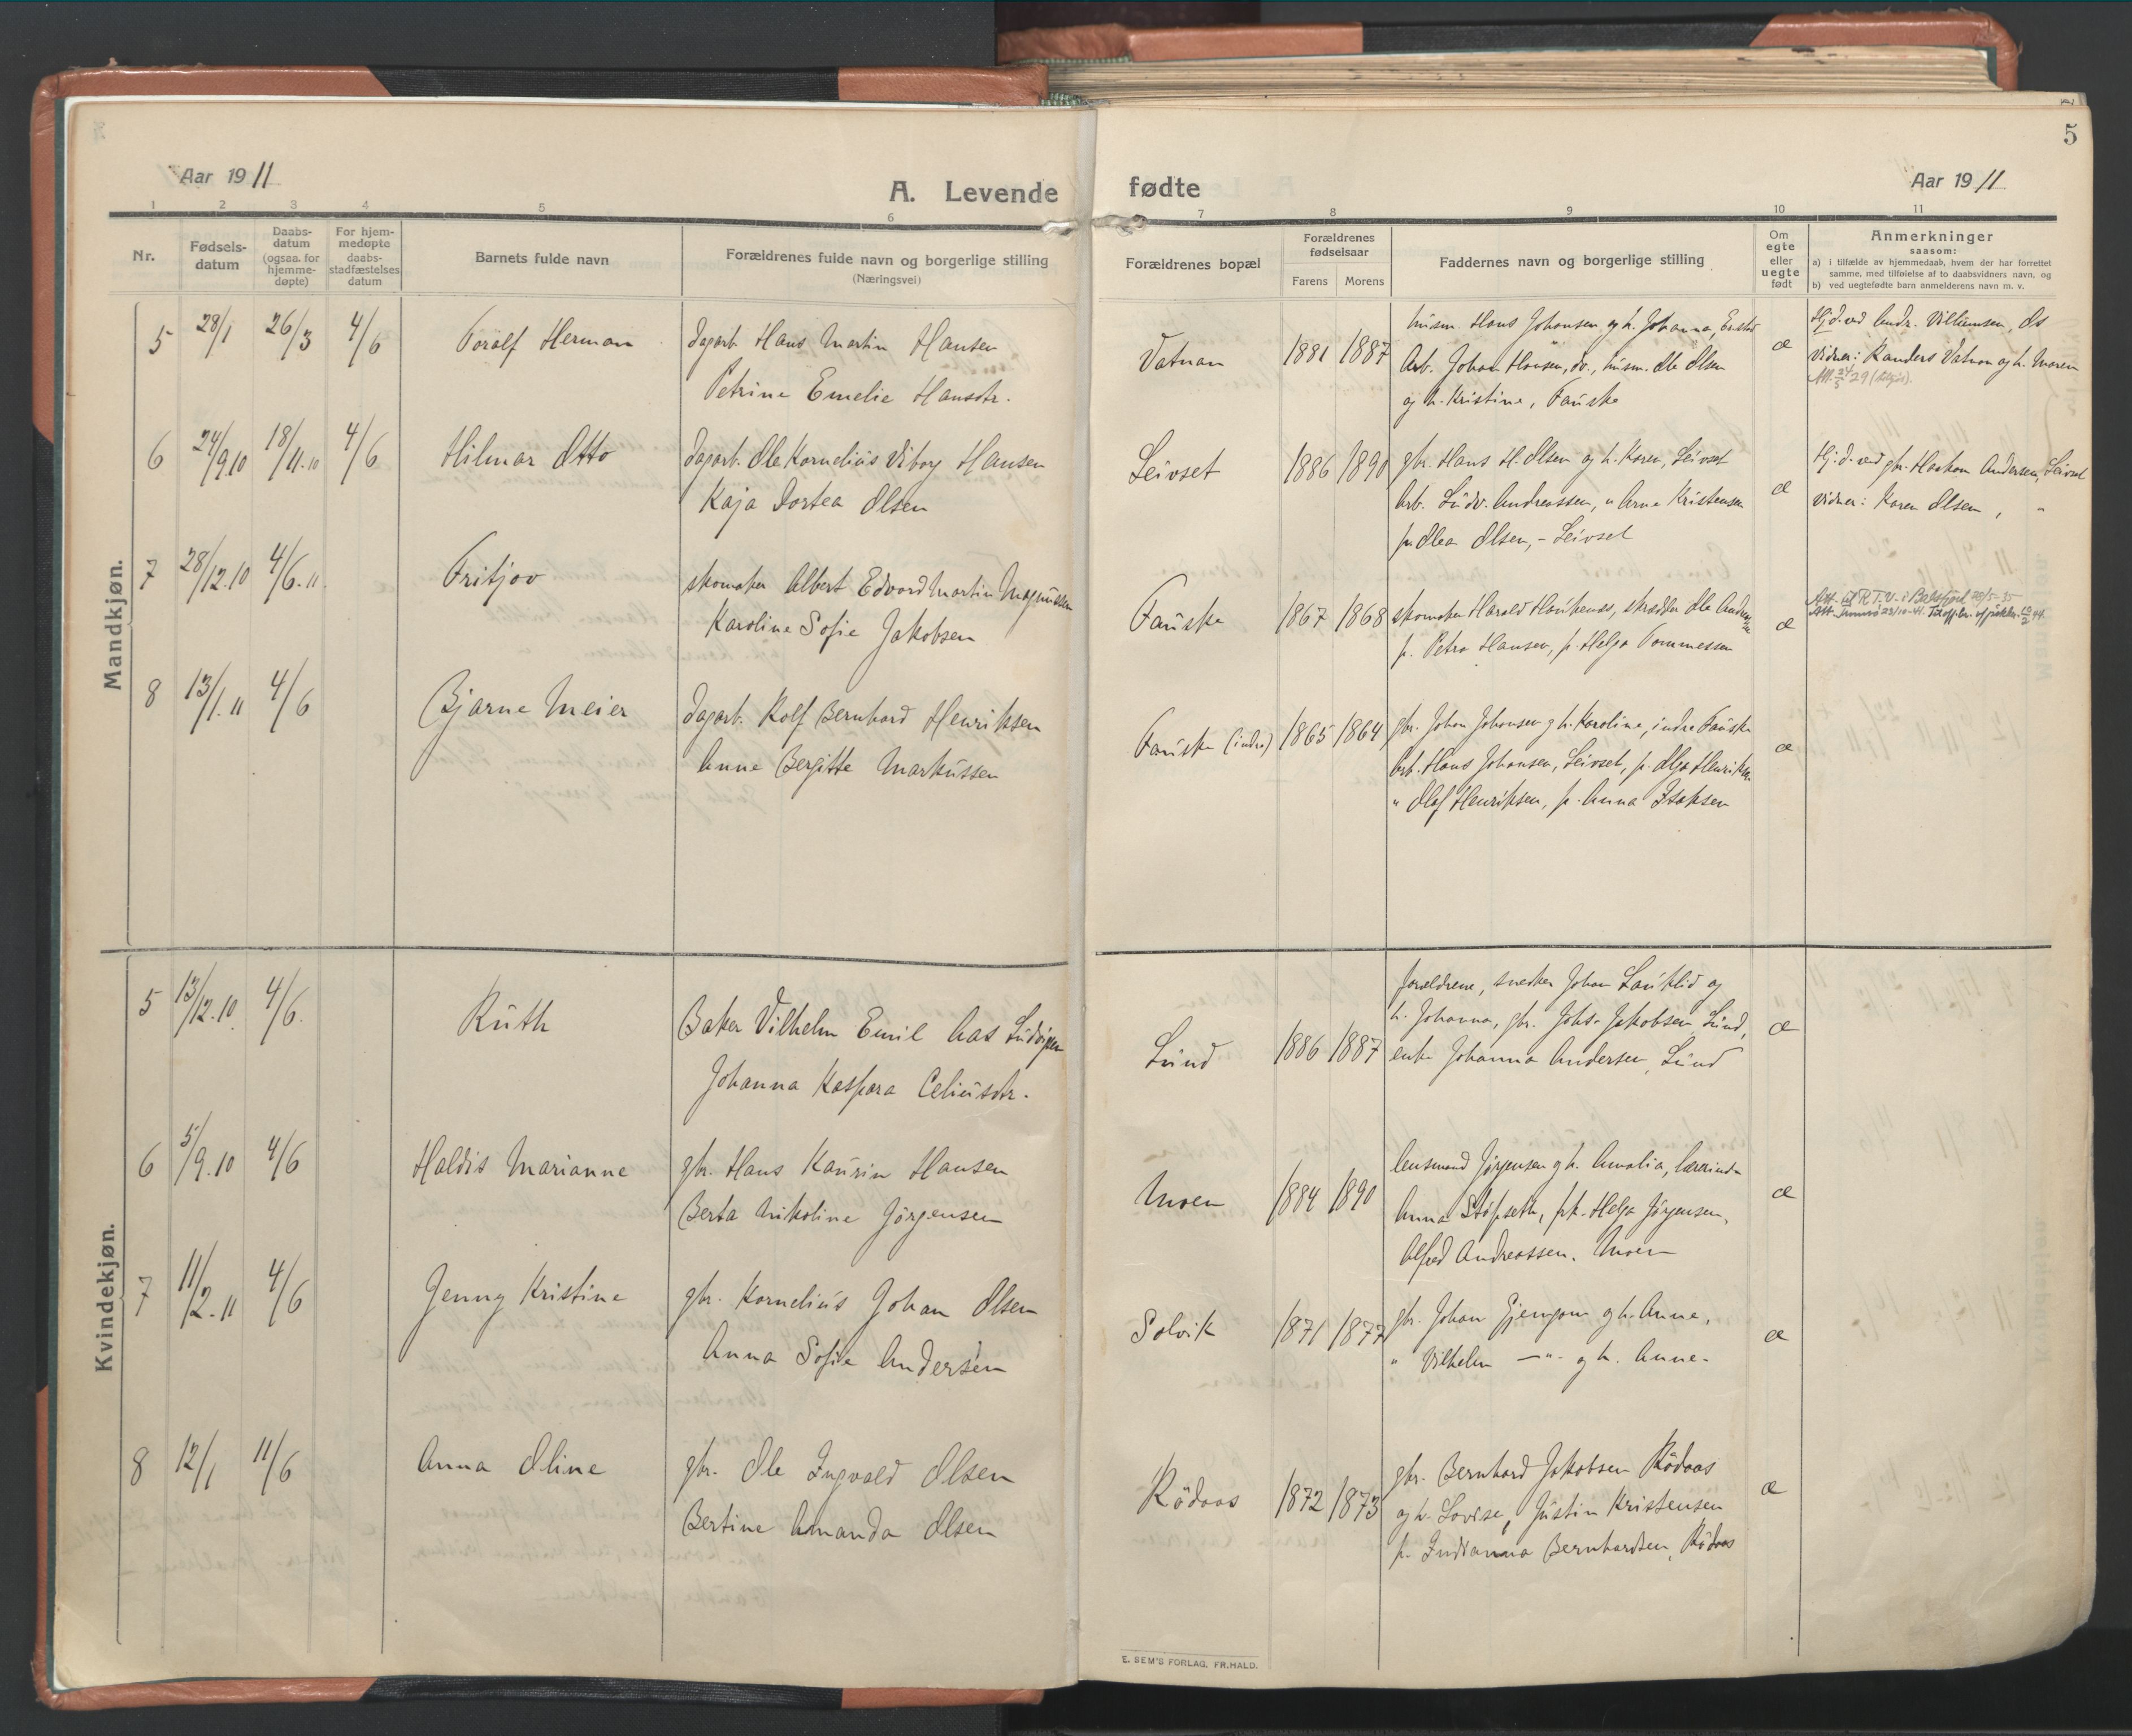 5
Aar 1911
A. Levende fødte
Aar 1911
1 2 3 4 5 6 7 8 9 10 11
Nr.
Fødsels-
datum
Daabs-
datum
(ogsaa. for
hjemme-
døpte)
For hjem-
medøpte
daabs-
stadfæstelses
datum
Barnets fulde navn
Forældrenes fulde navn og borgerlige stilling
(Næringsvei)
Forældrenes bopæl
Forældrenes
fødselsaar
Farens Morens
Faddernes navn og borgerlige stilling
Om
egte
eller
uegte
født
Anmerkninger
saasom:
a) i tilfælde av hjemmedaab, hvem der har forrettet
samme, med tilføielse af to daabsvidners navn, og
b) ved uegtefødte barn anmelderens navn m. v.
Mandkjøn.
5 28/1 26/3 4/6 Toralf Herman
dagarb. Hans Martin Hansen
Petrine Emelie Hansdtr.
Vatnan 1881 1887
husm. Hans Johansen og h. Johanna,
Arb. Johan Hansen, do., husm. Ole Olsen
og h. Kristine, Fauske
æ
Hj.d. ved Andr. Villumsen, ds
vidner: Randers Vatnan og h. Maren
6 24/9 10 18/11. 10 4/6 Hilmar Otto
dagarb. Ole Kornelius Viborg Hansen
Kaja Dortea Olsen
Leivset 1886 1890
gbr. Hans H. Olsen og h. Karen, Leivset
Arb. Ludv. Andreassen, " Arne Kristensen
p. Olea Olsen, - Leivset
æ
Hj.d. ved gbr. Haakon Andersen, Leivset
vidner: Karen Olsen, "
7 28/12.10 4/6. 11 Fritjov
skomaker Albert Edvard Martin Magnussen
Karoline Sofie Jakobsen
Fauske 1867 1868
skomaker Harald Haukenæs, skrædder Ole Andersen
p. Petra Hansen, p. Helga Tommessen
æ
8 13/1. 11 4/6 Bjarne Meier
dagarb. Rolf Bernhard Henriksen
Anne Bergitte Markussen
Fauske (indre) 1865 1864
gbr. Johan Johansen og h. Karoline, indre Fauske
Arb. Hans Johansen, Leivset, p. Olga Henriksen
" Olaf Henriksen, p. Anna Isaksen
æ
Kvindekjøn.
5 13/12.10 4/6. Ruth
Baker Vilhelm Emil Aas Ludvigsen
Johanna Kaspara Celiusdtr.
Lund 1886 1887
forældrene, snedker Johan Lauklid og
h. Johanna, gbr. Johs. Jakobsen, Lund,
enke Johanna Andersen, Lund
æ
6 5/9.10 4/6 Haldis Marianne
gbr. Hans Kaurin Hansen
Berta Nikoline Jørgensen
Moen 1884 1890
lensmand Jørgensen og h. Amalia, lærerinde
Anna Støpseth, frk. Helga Jørgensen,
Alfred Andreassen. Moen
æ
7 11/2. 11 4/6 Jenny Kristine
gbr. Kornelius Johan Olsen
Anna Sofie Andersen
Solvik 1871 1877
gbr. Johan Gjengam og h. Anne,
" Vilhelm —"— og h. Anne.
æ
8 12/1 11/6 Anna Oline
gbr. Ole Ingvald Olsen
Bertine Amanda Olsen
Rödaas 1872 1873
gbr. Bernhard Jakobsen Rödaas
og h. Lovise, Justin Kristensen
p. Indianna Bernhardsen, Rödaas
æ
E. SEM'S FORLAG. FR.HALD.